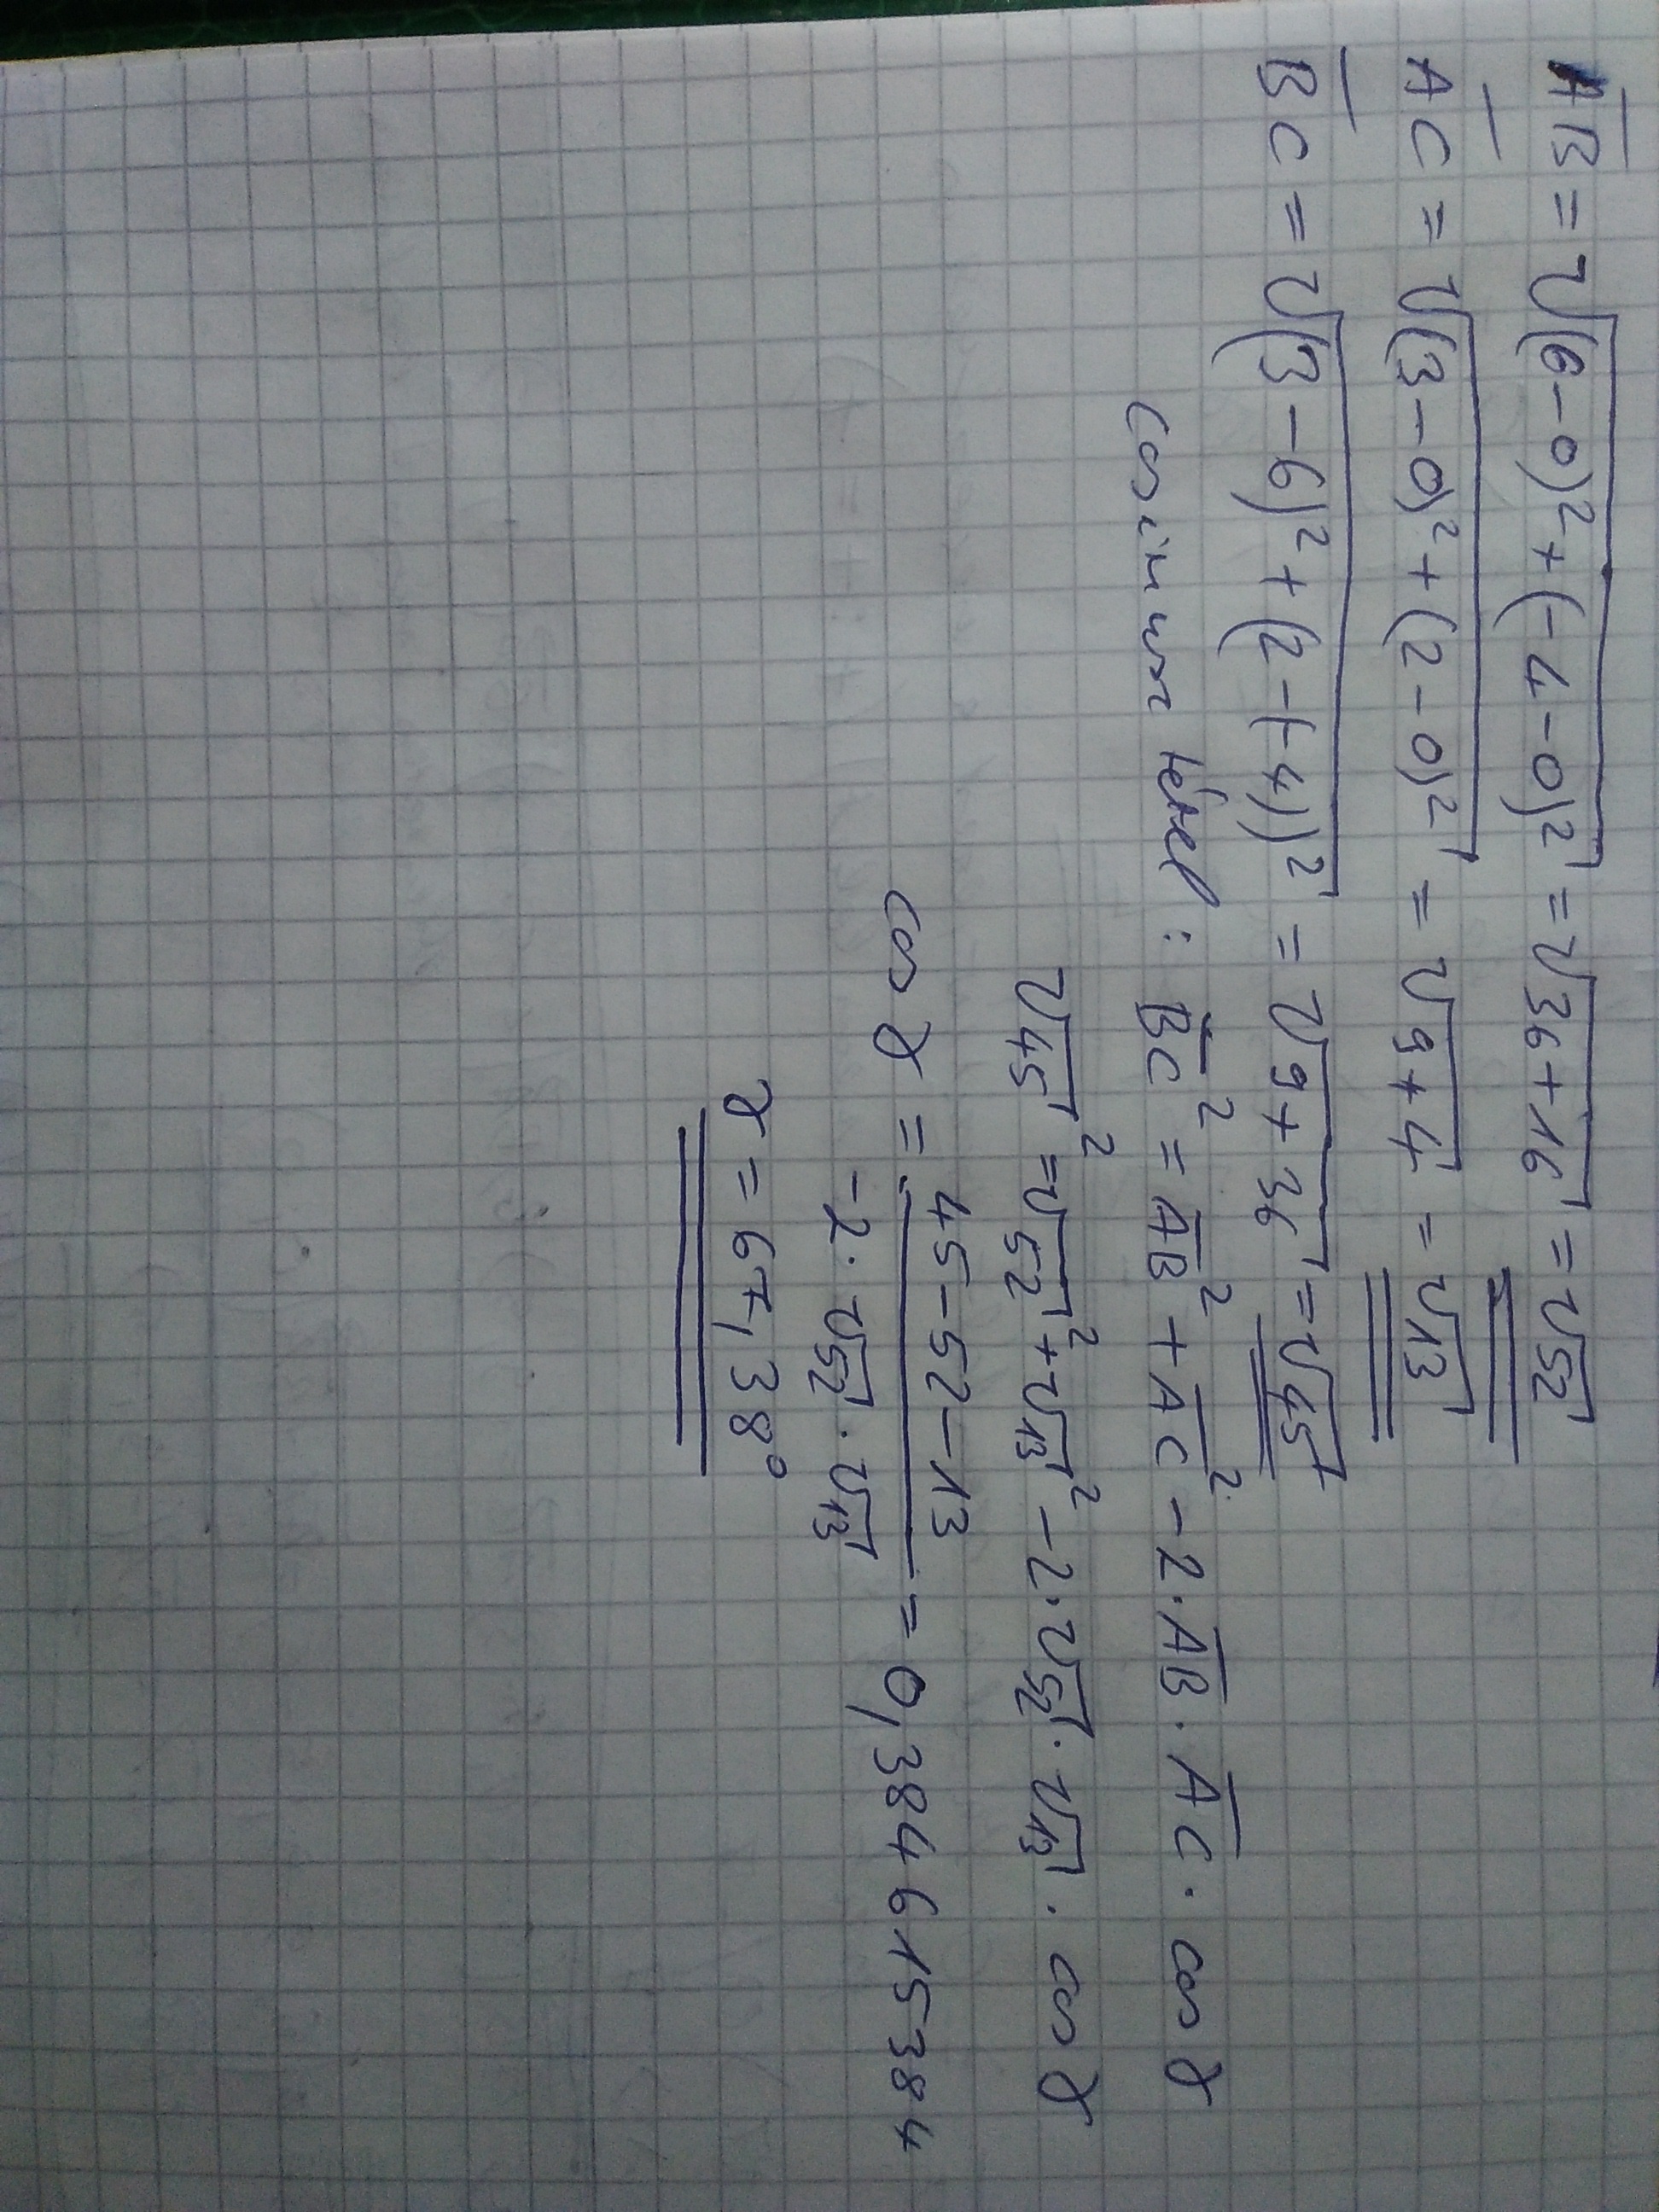 AB = √(6-0)² + (-4-0)² = √36+16 = √52
AC = √(3-0)² + (2-0)² = √9+4 = √13
BC = √(3-6)² + (2-(-4))² = √9+36 = √45
cosinus tétel: BC² = AB² + AC² - 2·AB·AC·cos γ
√45² = √52² + √13² - 2·√52·√13·cos γ
cos γ = 45-52-13 / -2·√52·√13 = 0,384615384
γ = 67,38°